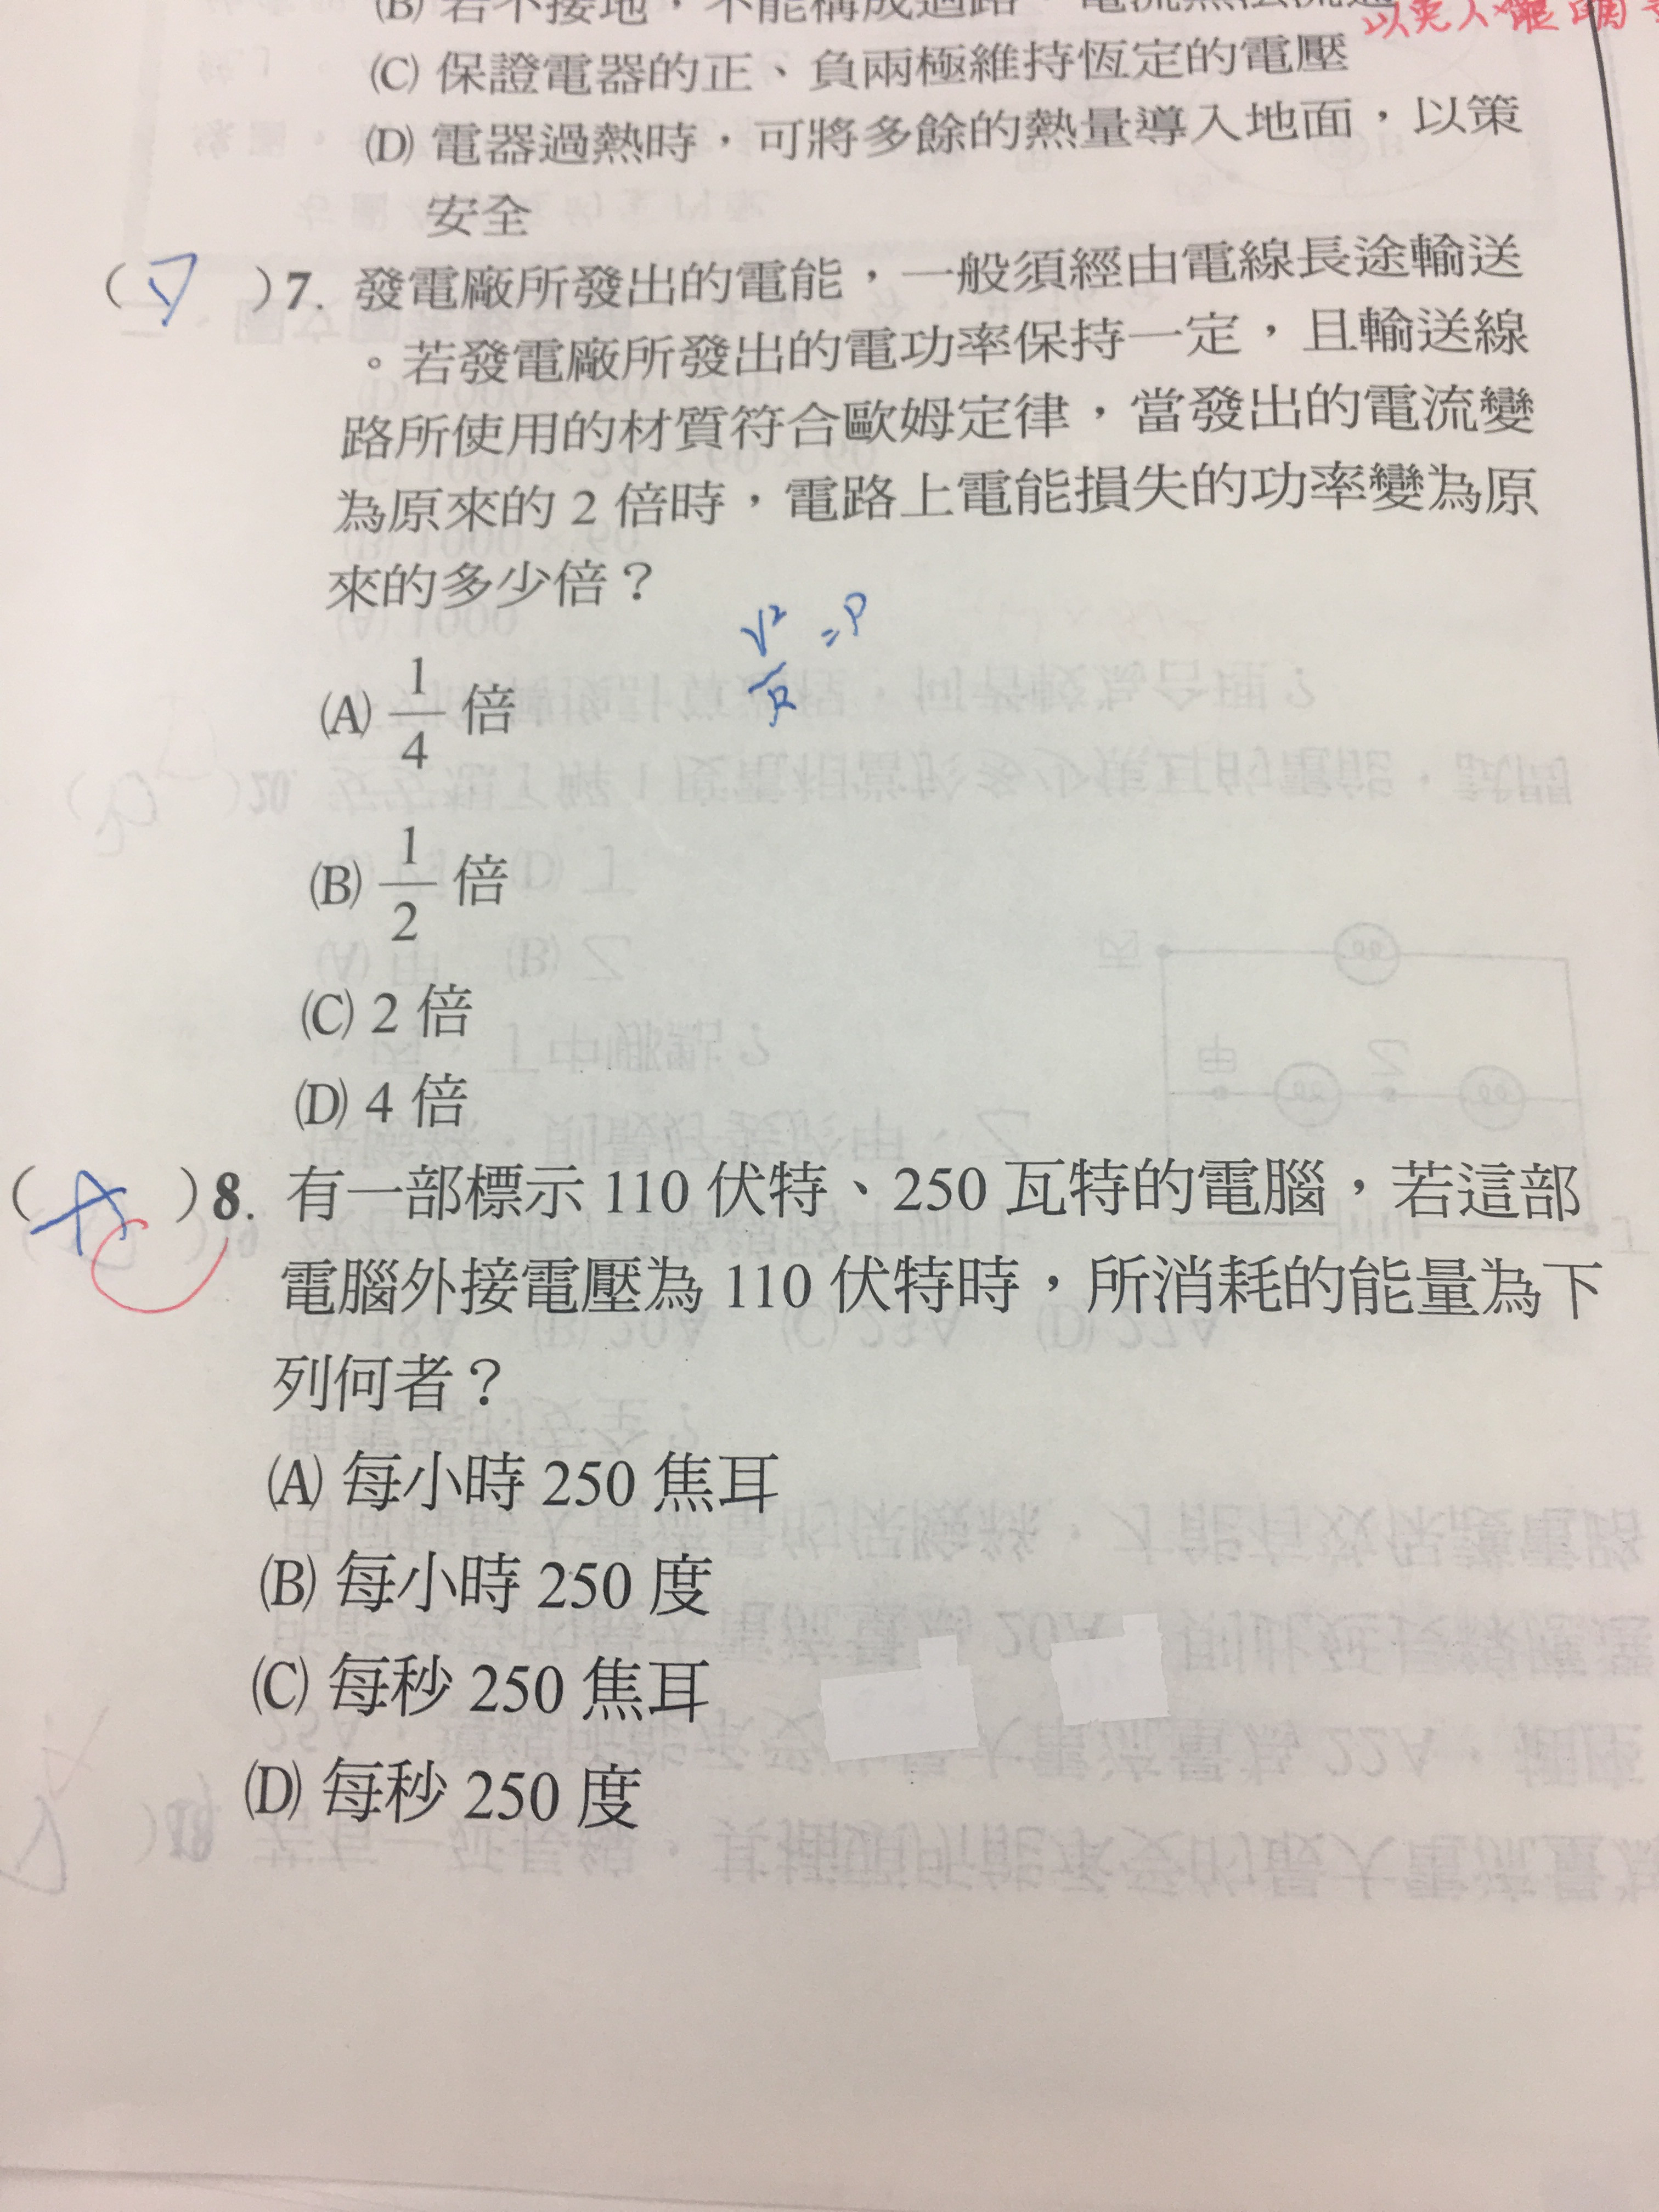 (B) 若不接地，不能構成迴路，電流無法流通
(C) 保證電器的正、負兩極維持恆定的電壓
(D) 電器過熱時，可將多餘的熱量導入地面，以策
安全
( D )7. 發電廠所發出的電能，一般須經由電線長途輸送
。若發電廠所發出的電功率保持一定，且輸送線
路所使用的材質符合歐姆定律，當發出的電流變
為原來的 2 倍時，電路上電能損失的功率變為原
來的多少倍？
V²/R = P
(A) 1/4 倍
(B) 1/2 倍
(C) 2 倍
(D) 4 倍
( )8. 有一部標示 110 伏特、250 瓦特的電腦，若這部
電腦外接電壓為 110 伏特時，所消耗的能量為下
列何者？
(A) 每小時 250 焦耳
(B) 每小時 250 度
(C) 每秒 250 焦耳
(D) 每秒 250 度